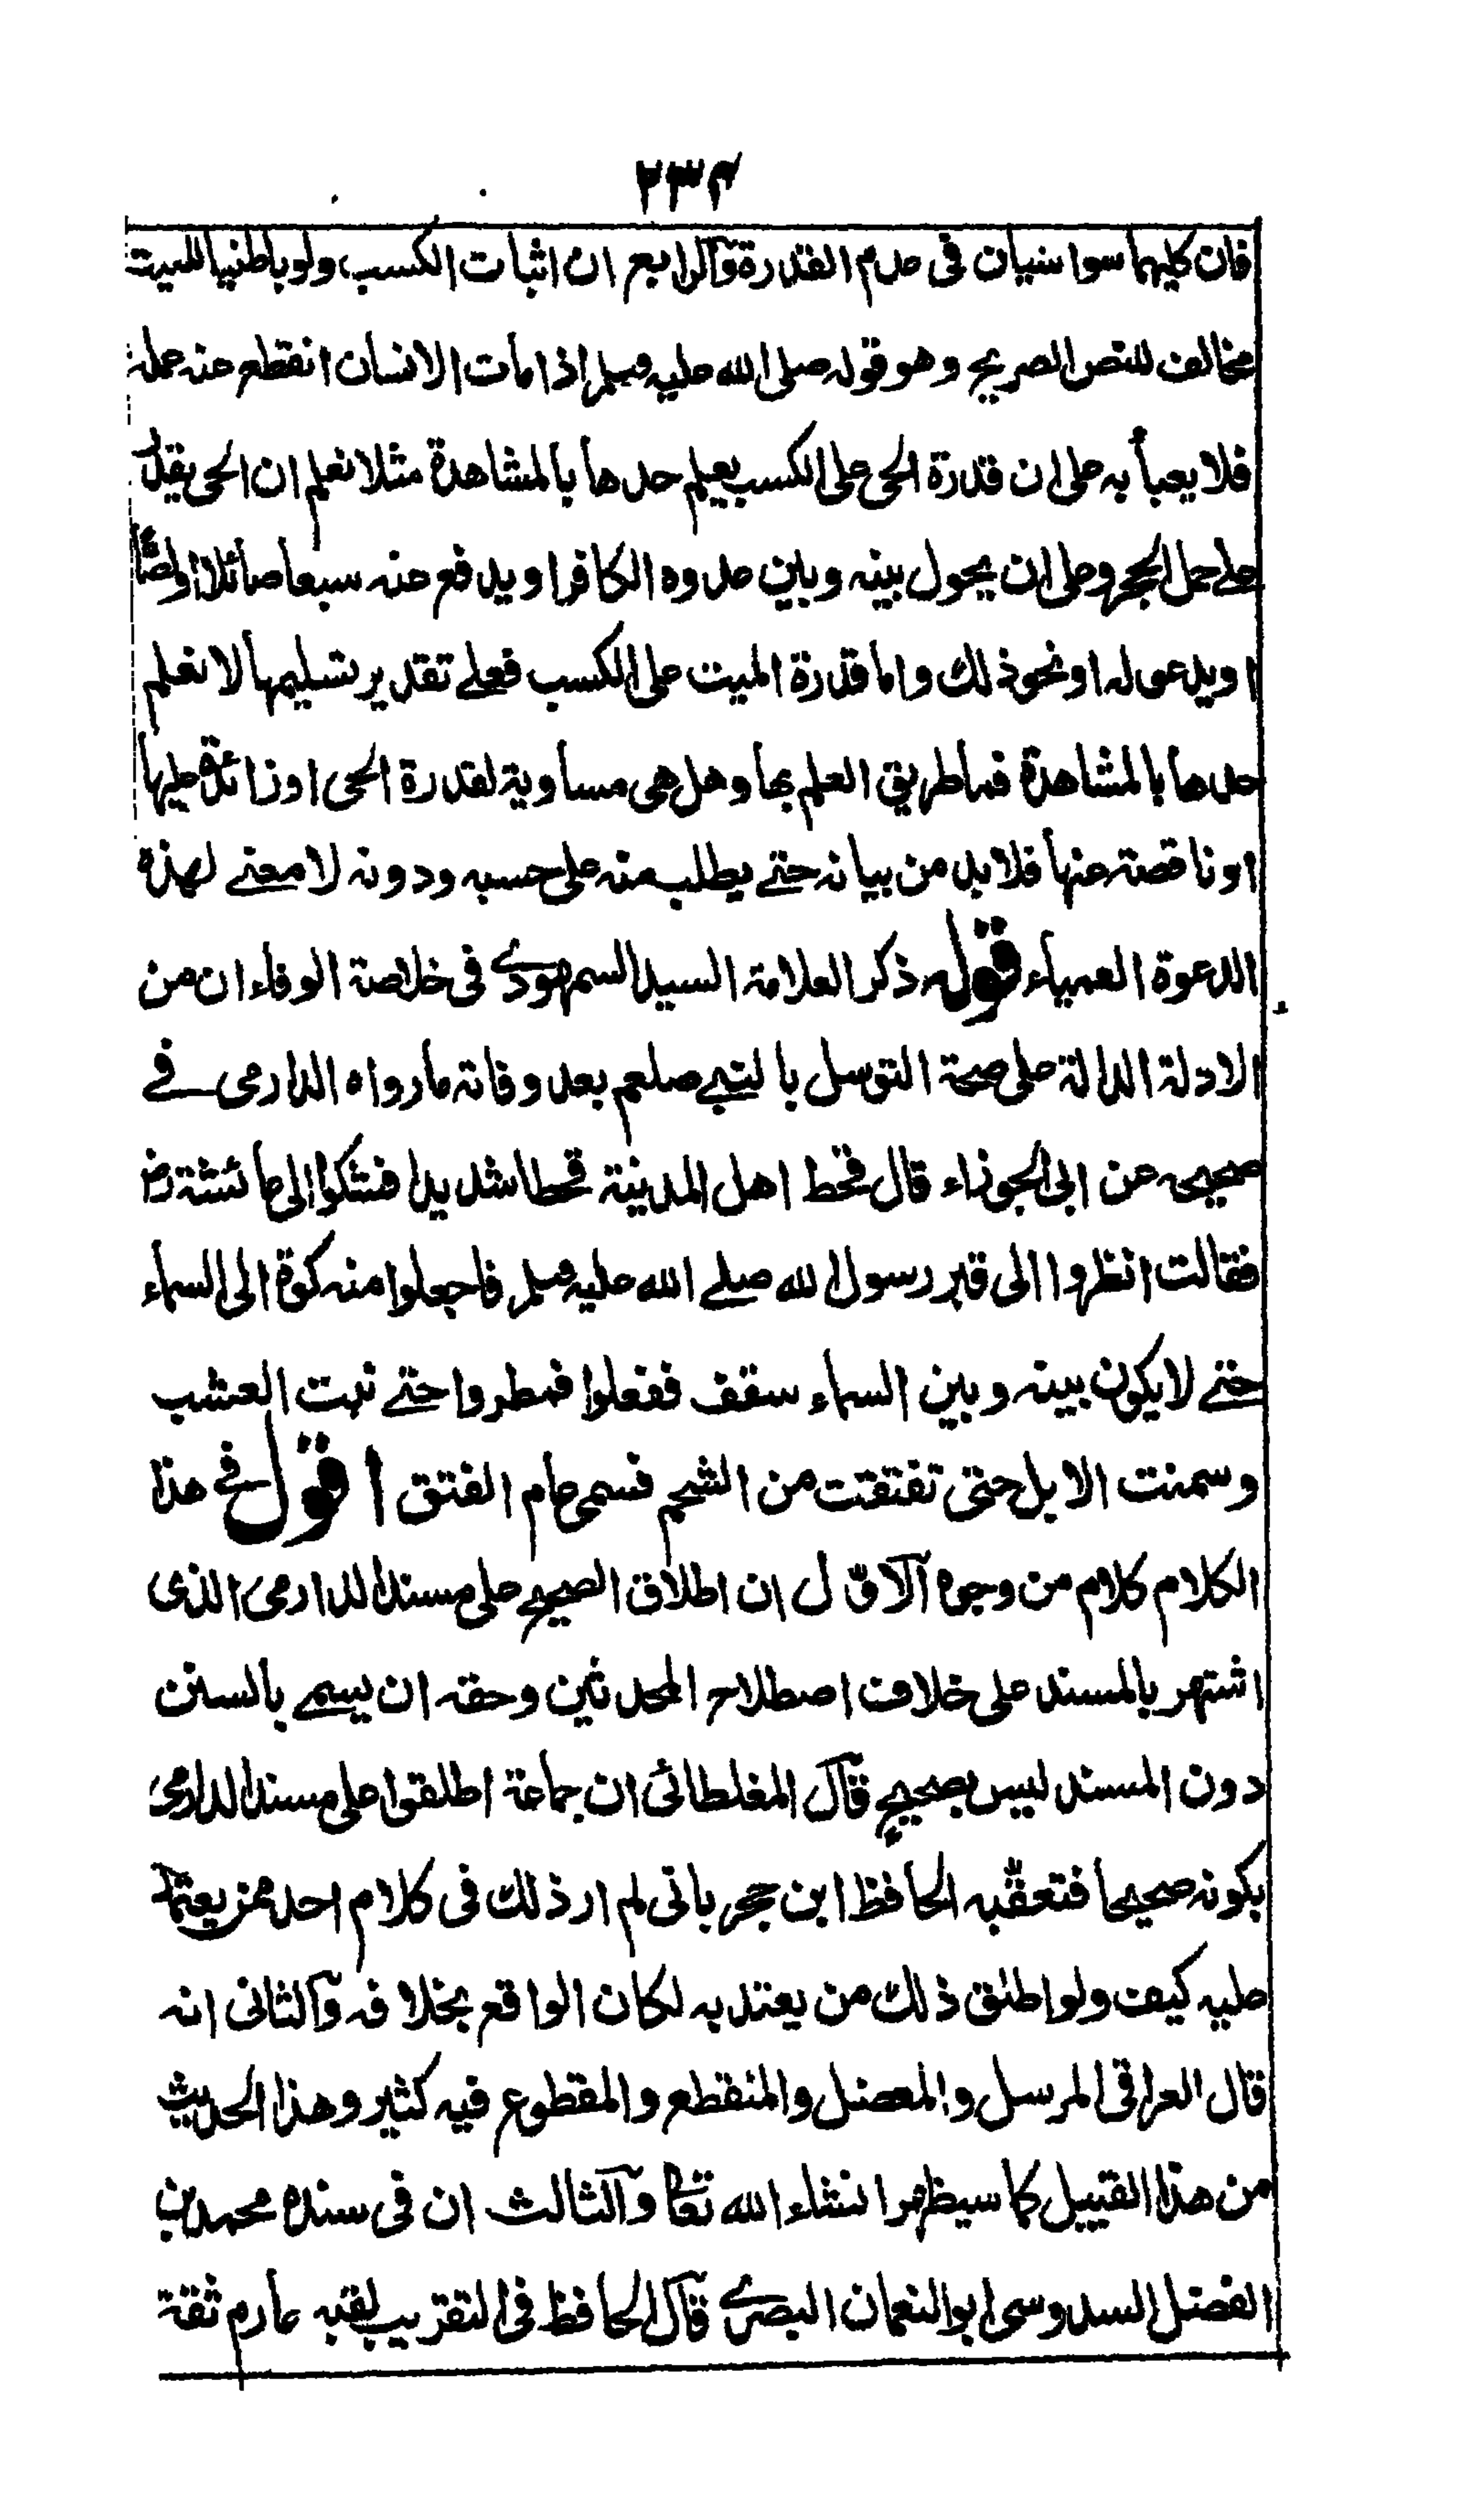 ٢٣٤
فان كليهما سواسيان فى عدم القدرة والرابع ان اثبات الكسب ولو باطنيا للميت
مخالف للنص الصريح وهو قوله صلى الله عليه وسلم اذا مات الانسان انقطع عنه عمله
فلا يعبأ به على ان قدرة الحى على الكسب يعلم حدها بالمشاهدة مثلا نعلم ان الحى يقدر
على حمل الحجر وعلى ان يحول بينه وبين عدوه الكافر او يدفع عنه سبعا صائلا او لصًا
او يدعو له او نحو ذلك واما قدرة الميت على الكسب فعلى تقدير تسليمها لا نعلم
حدها بالمشاهدة فما طريق العلم بها وهل هى مساوية لقدرة الحى او زائدة عليها
او ناقصة عنها فلا بد من بيانه حتے يطلب منه على حسبه ودونه لا معنے لهذه
الدعوة العمياء قوله ذكر العلامة السيد السمهودے فى خلاصة الوفاء ان من
الادلة الدالة على صحة التوسل بالنبے صلعم بعد وفاته ما رواه الدارمى فے
صحيحه عن ابى الجوزاء قال قحط اهل المدينة قحطا شديدا فشكوا الى عائشة رض
فقالت انظروا الى قبر رسول الله صلے الله عليه وسلم فاجعلوا منه كوة الى السماء
حتے لا يكون بينه وبين السماء سقف ففعلوا فمطروا حتے نبت العشب
وسمنت الابل حتى تفتقت من الشحم فسمى عام الفتق اقول فے هذا
الكلام كلام من وجوه الاول ان اطلاق الصحيح على مسند الدارمى الذى
اشتهر بالمسند على خلاف اصطلاح المحدثين وحقه ان يسمے بالسنن
دون المسند ليس بصحيح قال المغلطائى ان جماعة اطلقوا على مسند الدارمى
بكونه صحيحا فتعقبه الحافظ ابن حجر بانى لم ار ذلك فى كلام احد ممن يعتمد
عليه كيف ولو اطلق ذلك من يعتد به لكان الواقع بخلافه والثانى انه
قال العراقى المرسل والمعضل والمنقطع والمقطوع فيه كثير وهذا الحديث
من هذا القبيل كما سيظهر انشاء الله تعا والثالث ان فى سنده محمد بن
الفضل السدوسى ابو النعمان البصرے قال الحافظ فى التقريب لقبه عارم ثقة